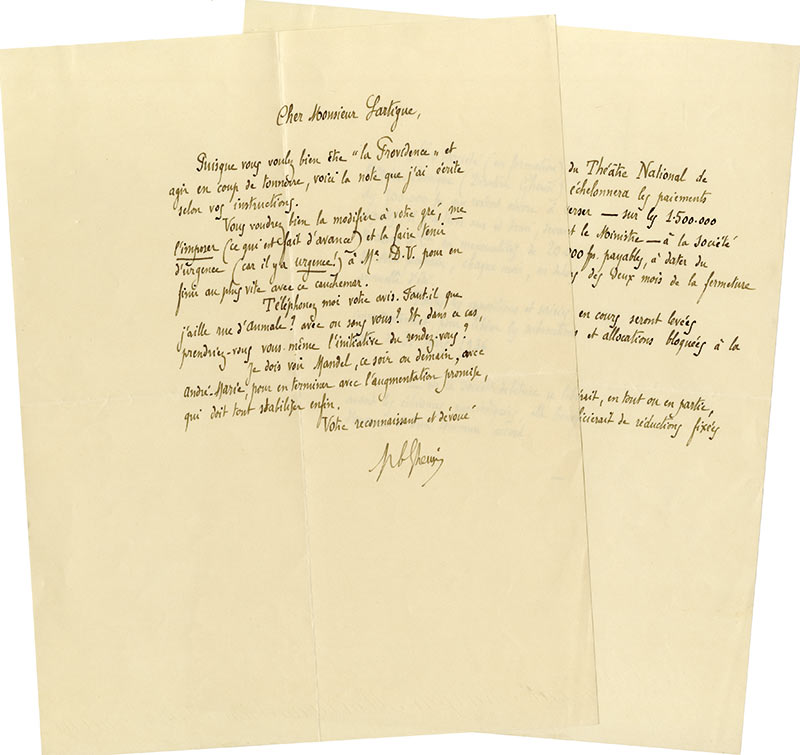 Cher Monsieur Lartigue,
Puisque vous voulez bien être "la Providence" et
agir en coup de tonnerre, voici la note que j'ai écrite
selon vos instructions.
Vous voudrez bien la modifier à votre gré, me
l'imposer (ce qui est fait d'avance) et la faire tenir
d'urgence (car il y a urgence!) à Me D.V. pour en
finir au plus vite avec ce cauchemar.
Téléphonez moi votre avis. Faut-il que
j'aille rue d'Aumale? avec ou sans vous? Et, dans ce cas,
prendriez-vous vous-même l'initiative du rendez-vous?
Je dois voir Mandel, ce soir ou demain, avec
André-Marie, pour en terminer avec l'augmentation promise,
qui doit tout stabiliser enfin.
Votre reconnaissant et dévoué
du Théâtre National de
échelonnera les paiements
verser — sur les 1.500.000
et le Ministre — à la société
000 frs. payables, à dater du
des deux mois de la fermeture
en cours seront levées
et allocations bloquées à la
rait, en tout ou en partie,
ficierait de réductions fixées